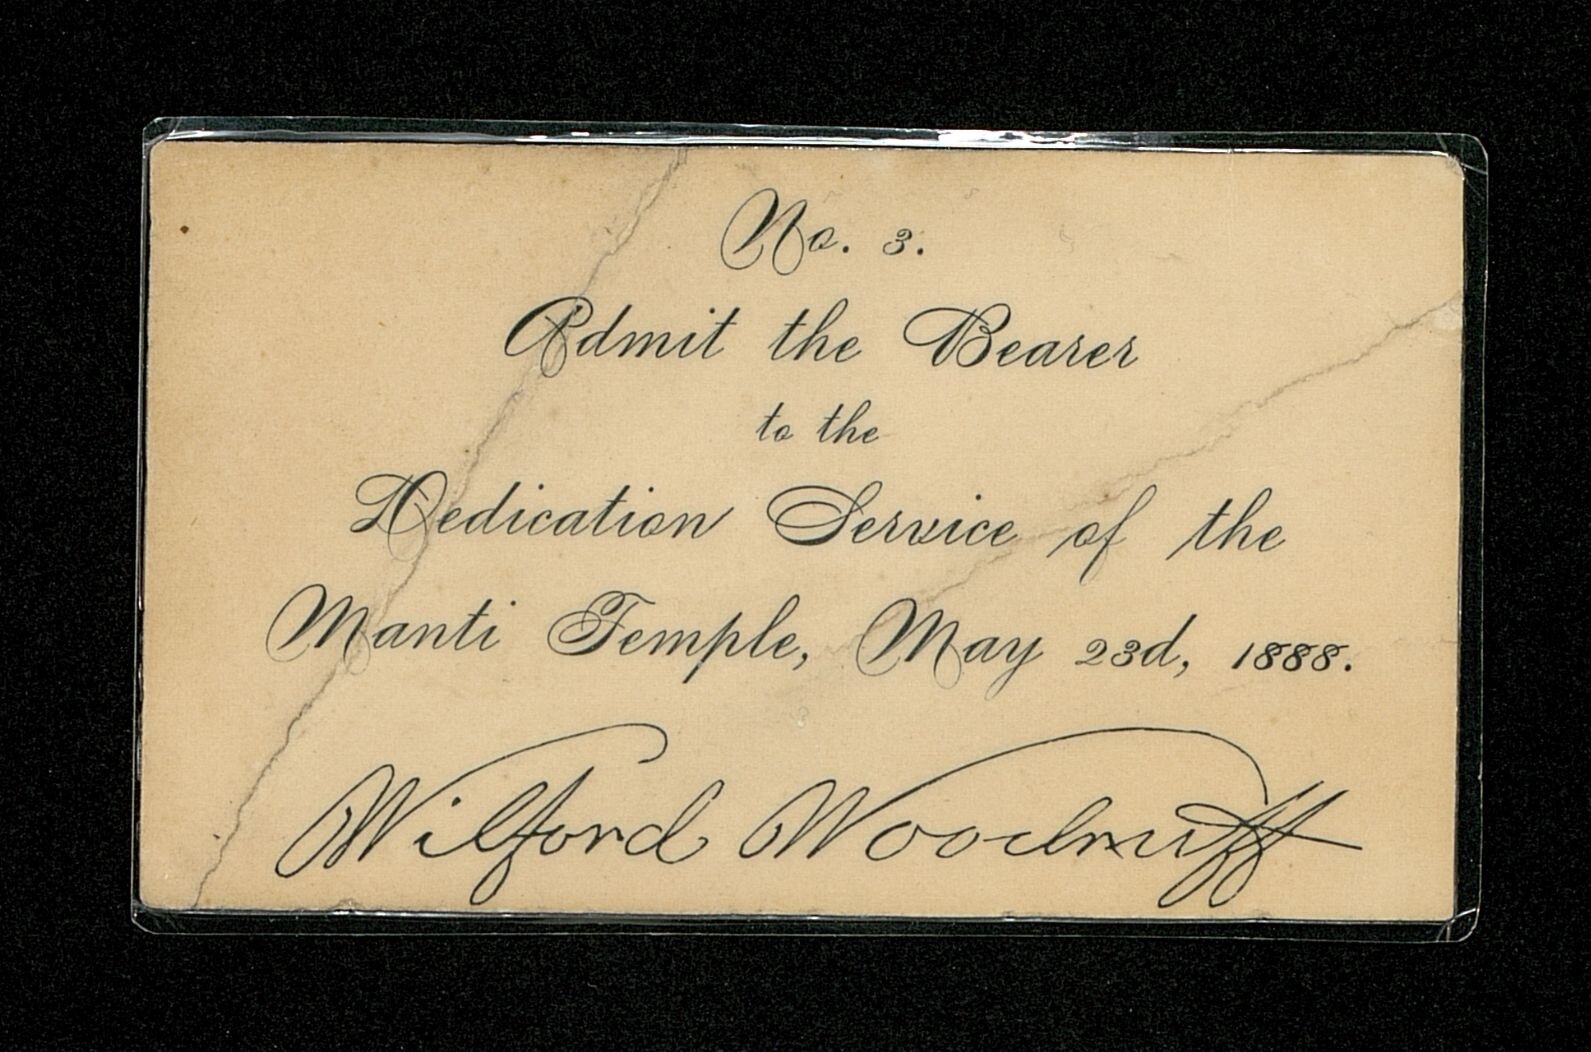 No. 3.
Admit the Bearer
to the
Dedication Service of the
Manti Temple, May 23d, 1888.
Wilford Woodruff